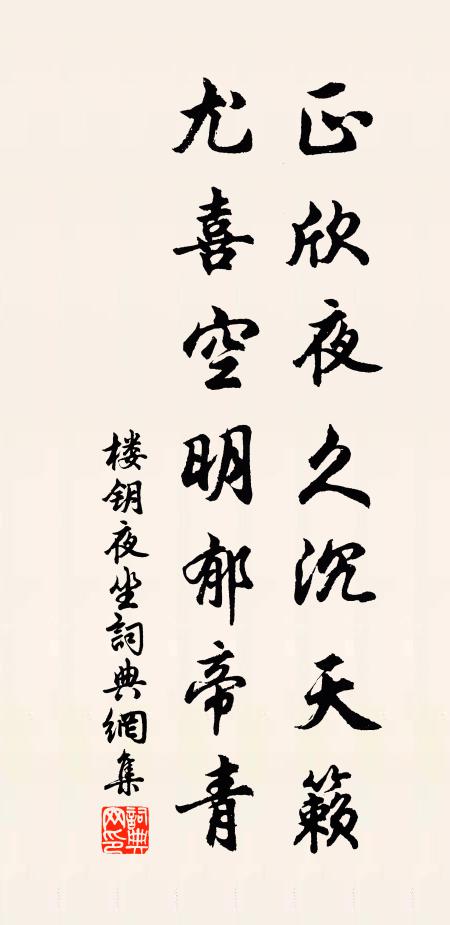 正欣夜久沉天籁
尤喜空明郁帝青
楼钥夜坐詞典網集
詞典網印